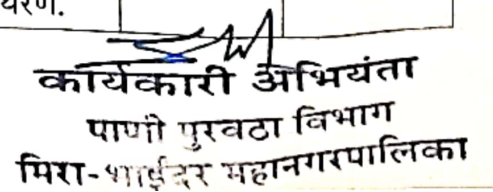 यरण.
कार्यकारी अभियंता
पाणी पुरवठा विभाग
मिरा-भाईंदर महानगरपालिका